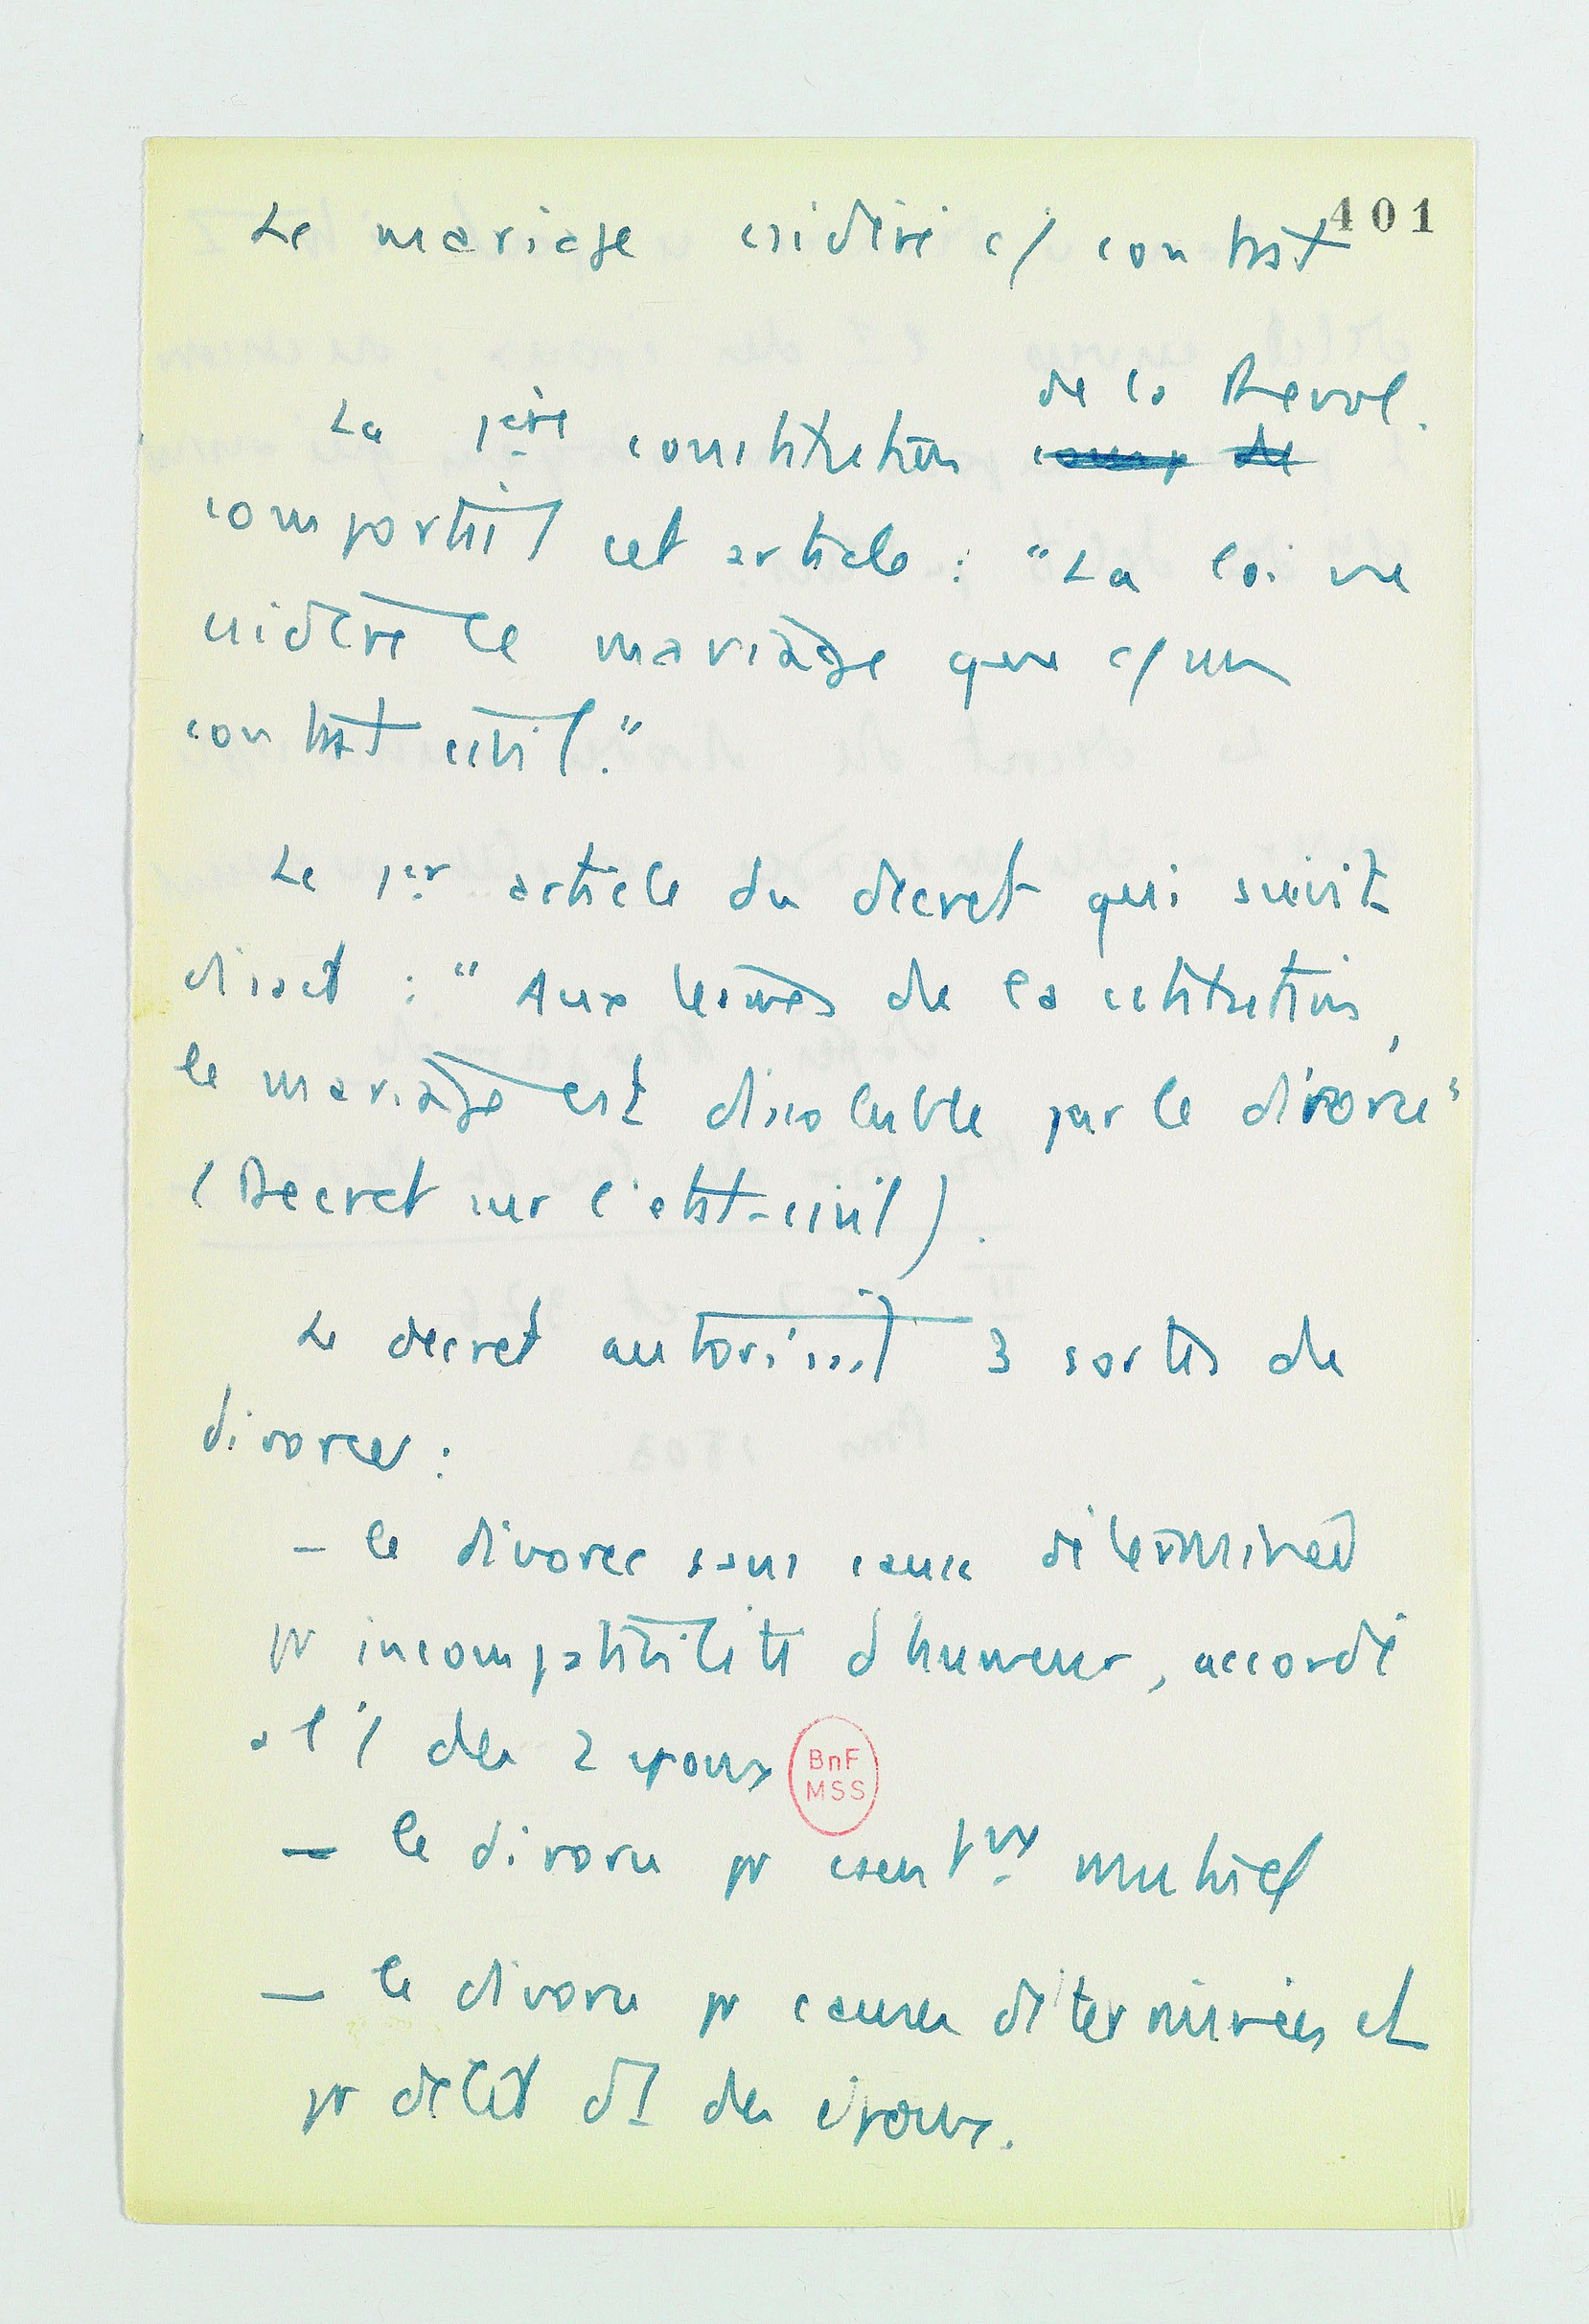 401
Le mariage csidéré c/ contrat
de la Revol.
La 1ère constitution
comportait cet article : "La loi ne
csidère le mariage que c/ un
contrat civil."
Le 1er article du decret qui suivit
disait : "Aux termes de la cstitution,
le mariage est dissoluble par le divorce"
(Decret sur l'etat-civil).
Le decret autorisait 3 sortes de
divorces :
- le divorce sans cause déterminée
pr incompatibilité d'humeur, accordé
a l'1 des 2 epoux
BnF
MSS
- le divorce pr csent mutuel
- le divorce pr causes déterminées et
pr délit d'1 des époux.